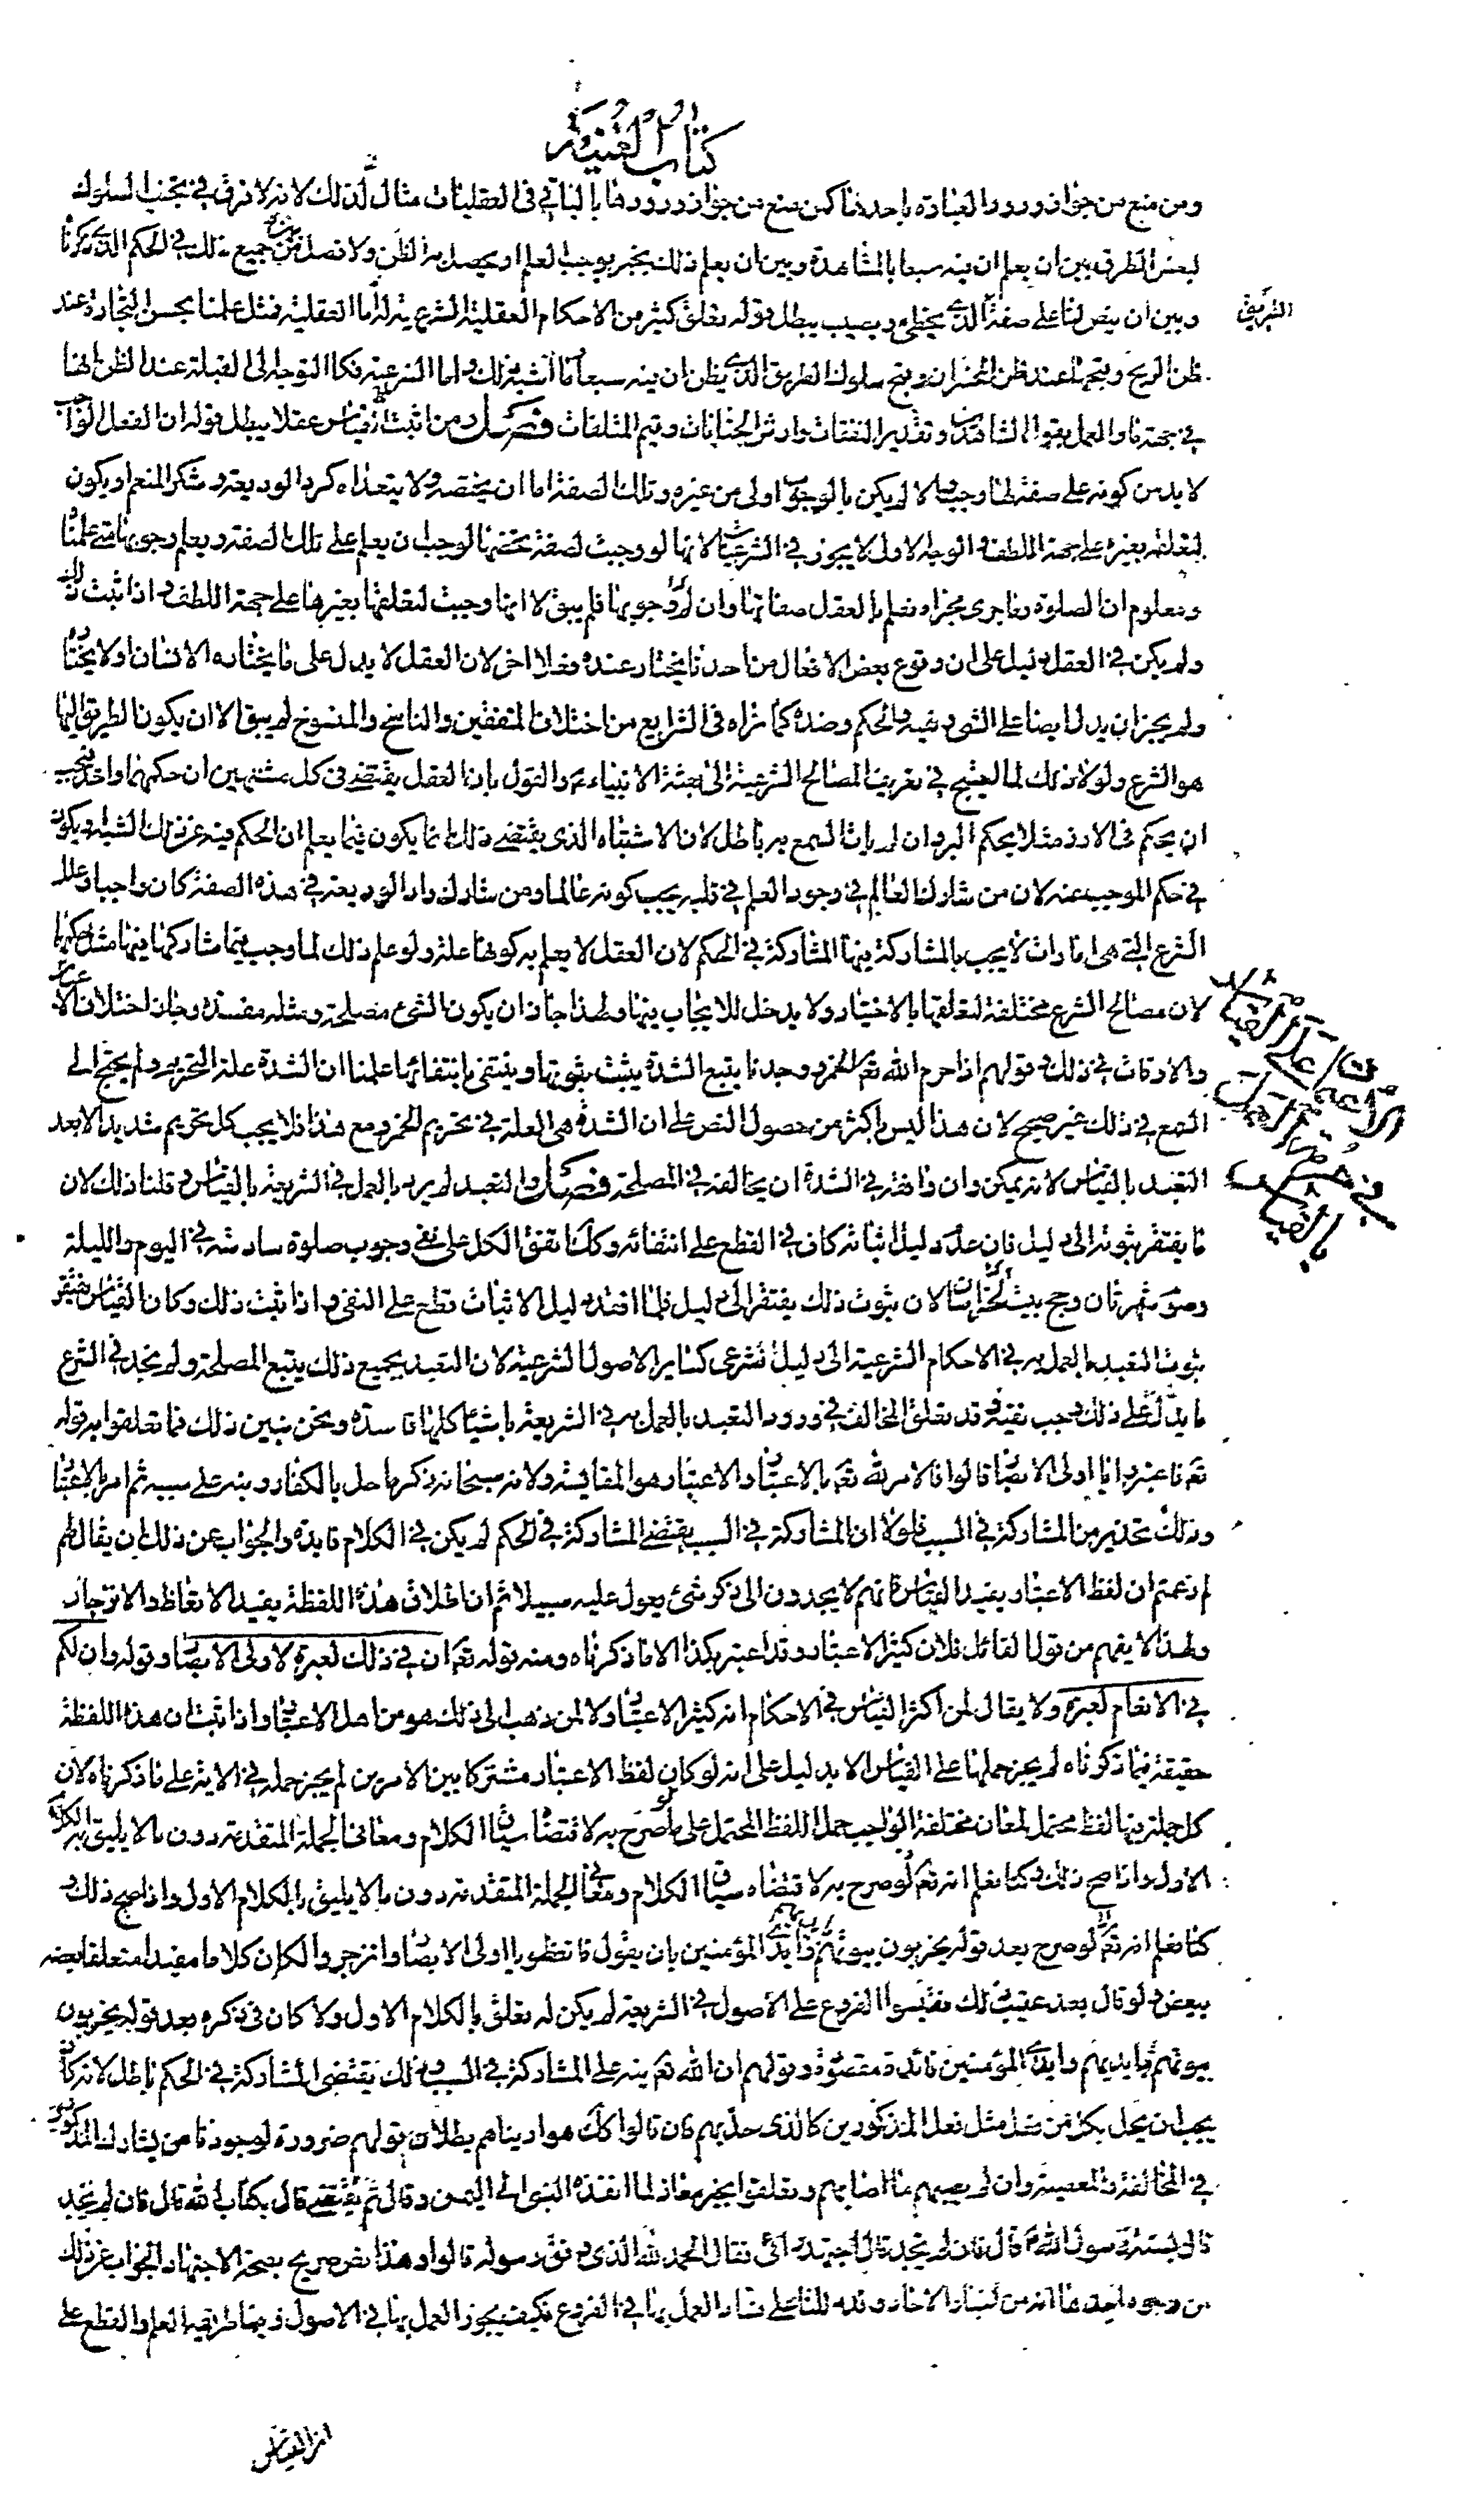 كتاب الغنية
ومن منع من جواز ورود العبادة باحدهما كمن منع من جواز ورودها بالباقي في العقليات مثال لذلك لانه لا فرق في تجنب السلوك
لبعض الطرق بين ان يعلم ان فيه سبعا بالمشاهدة وبين ان يعلم ذلك بخبر يوجب العلم او يحصل به الظن ولا فصل بين جميع ذلك في الحكم الذي ذكرنا
وبين ان ينص لنا على صفة الذي يخطي ويصيب يبطل قوله تعلق كثير من الاحكام العقلية الشرعية اما العقلية فمثل علمنا بحسن التجارة عند
ظن الربح وقبحها عند ظن الخسران وقبح سلوك الطريق الذي يظن ان فيه سبعا وما اشبه ذلك واما الشرعية فكالتوجه الى القبلة عند الظن انها
في جهتها والعمل بقول الشاهدين وتقدير النفقات واروش الجنايات وقيم المتلفات فصل ومن اثبت القياس عقلا يبطل قوله ان الفعل الواجب
لا بد من كونه على صفة لها وجب والا لم يكن بالوجوب اولى من غيره وتلك الصفة اما ان يختصه ولا يتعداه كرد الوديعة وشكر المنعم او يكون
لتعلقه بغيره على جهة اللطف والوجه الاول لا يجوز في الشرعيات لانها لو وجبت لصفة تخصها لوجب ان يعلم على تلك الصفة ويعلم وجوبها متى علمنا
ومعلوم ان الصلوة وما جرى مجراه نعلم بالعقل صفاتها وان لم وجوبها فلم يبق الا انها وجبت لتعلقها بغيرها على جهة اللطف واذا ثبت ذلك
ولم يكن في العقل دليل على ان وقوع بعض الافعال من احدنا يختار عنده فعلا اخر لان العقل لا يدل على ما يختاره الانسان او لا يختار
ولم يجز ان يدل ايضا على الشي وغيره والحكم وضده كما نراه في الشرايع من اختلاف المتفقين والناسخ والمنسوخ لم يبق الا ان يكون الطريق اليها
هو الشرع ولولا ذلك لما احتيج في تعريف المصالح الشرعية الى بعثة الانبياء ع والقول بان العقل يقتضي في كل مشتبهين ان حكمهما واحد فيجب
ان يحكم في الارز مثلا بحكم البر وان لم يات السمع به باطل لان الاشتباه الذي يقتضي ذلك انما يكون فيما يعلم ان الحكم فيه عن ذلك الشبه ويكون
في حكم الموجب عنه لان من شارك العالم في وجود العلم في قلبه يجب كونه عالما ومن شارك راد الوديعة في هذه الصفة كان واجبا وعلل
الشرع التي هي امارات لا يجب بالمشاركة فيها المشاركة في الحكم لان العقل لا يعلم به كونها علة ولو علم ذلك لما وجب فيما شاركها فيها مثل حكمها
لان مصالح الشرع مختلفة لتعلقها بالاختيار ولا يدخل للايجاب فيها ولهذا جاز ان يكون الشئ مصلحة ومثله مفسدة وجاز اختلاف الاعيان
والاوقات في ذلك وقولهم اذا حرم الله تع الخمر ووجدنا يتبع الشدة يثبت بثبوتها وينتفي بانتفائها علمنا ان الشدة علة التحريم ولم يحتج الى
السمع في ذلك غير صحيح لان هذا ليس باكثر من حصول النص على ان الشدة هي العلة في تحريم الخمر ومع هذا فلا يجب كل تحريم شديد الا بعد
التعبد بالقياس لانه يمكن وان وافقه في الشدة ان يخالفه في المصلحة فصل والتعبد لم يرد بالعمل في الشريعة بالقياس وقلنا ذلك لان
ما يفتقر ثبوته الى دليل فان عدم دليل اثباته كاف في القطع على انتفائه وكذا يتفق الكل على نفي وجوب صلوة سادسة في اليوم والليلة
وصوم شهر ثان وحج بيت بخراسان لان ثبوت ذلك يفتقر الى دليل فلما افتقد دليل الاثبات قطع على النفي واذا ثبت ذلك وكان القياس يفتقر
ثبوت التعبد بالعمل به في الاحكام الشرعية الى دليل شرعي كساير الاصول الشرعية لان التعبد بجميع ذلك يتبع المصلحة ولم نجد في الشرع
ما يدل على ذلك وجب نفيه وقد تعلق المخالف في ورود التعبد بالعمل به في الشريعة باشيا كلها فاسدة ونحن نبين ذلك فما تعلقوا به قوله
تع فاعتبروا يا اولى الابصار قالوا فالامر لله تع بالاعتبار والاعتبار هو المقايسة ولانه سبحانه ذكر ما حل بالكفار ونبه على سببه ثم امر بالاعتبار
وذلك تحذير من المشاركة في السبب فلولا ان المشاركة في السبب يقتضي المشاركة في الحكم لم يكن في الكلام فايدة والجواب عن ذلك ان يقال لهم
لم زعمتم ان لفظ الاعتبار يفيد القياس فانهم لا يجدون الى ذكر شئ يعول عليه سبيلا ثم ان اطلاق هذه اللفظة يفيد الاتعاظ والانزجار
ولهذا لا يفهم من قول القائل فلان كثير الاعتبار وقد اعتبر بكذا الا ما ذكرناه ومنه قوله تع ان في ذلك لعبرة لاولى الابصار وقوله وان لكم
في الانعام لعبرة ولا يقال لمن اكثر القياس في الاحكام انه كثير الاعتبار ولا لمن ذهب الى ذلك هو من اهل الاعتبار واذا ثبت ان هذا اللفظة
حقيقة فيما ذكرناه لم يجز حملها على القياس الا بدليل على انه لو كان لفظ الاعتبار مشتركا بين الامرين لم يجز حمله في الاية على ما ذكرناه لان
كل جملة فيها لفظ محتمل لمعان مختلفة الواجب حمل اللفظ المحتمل على ما لو صرح به لاقتضاه سياق الكلام ومعاني الجملة المتقدمة دون ما لا يليق بالكلام
الاول واذا صح ذلك وكنا نعلم انه تع لو صرح به لاقتضاه سياق الكلام ومعاني الجملة المتقدمة دون ما لا يليق بالكلام الاول واذا صح ذلك و
كنا نعلم انه تع لو صرح بعد قوله يخربون بيوتهم بايديهم وايدي المؤمنين بان يقول فاتعظوا يا اولى الابصار وانزجروا لكان كلاما مفيدا متعلقا بعضه
ببعض ولو قال بعد عقيب ذلك فقيسوا الفروع على الاصول في الشريعة لم يكن له تعلق بالكلام الاول ولا كان في ذكره بعد قوله يخربون
بيوتهم بايديهم وايدي المؤمنين فائدة مقصودة وقولهم ان الله تع نبه على المشاركة في السبب وذلك يقتضي المشاركة في الحكم باطل لانه كان
يجب ان يحل بكل من فعل مثل فعل المذكورين كالذي حل بهم فان قالوا كذلك هو ارينا هم بطلان قولهم ضرورة لوجودنا من يشارك المذكورين
في المخالفة والمعصية وان لم يصبهم ما اصابهم وتعلقوا بخبر معاذ لما انفذه النبي الى اليمن وقال بم تقضي قال بكتاب الله قال فان لم تجد
قال بسنة رسول الله ص قال فان لم تجد قال اجتهد رأئي فقال الحمد لله الذي وفق رسوله قالوا وهذا نص صريح بصحة الاجتهاد والجواب عن ذلك
من وجوه احدها انه من اخبار الاحاد وقد دللنا على فساد العمل بها في الفروع فكيف يجوز العمل بها في الاصول فيما طريقه العلم والقطع على
امر القياس